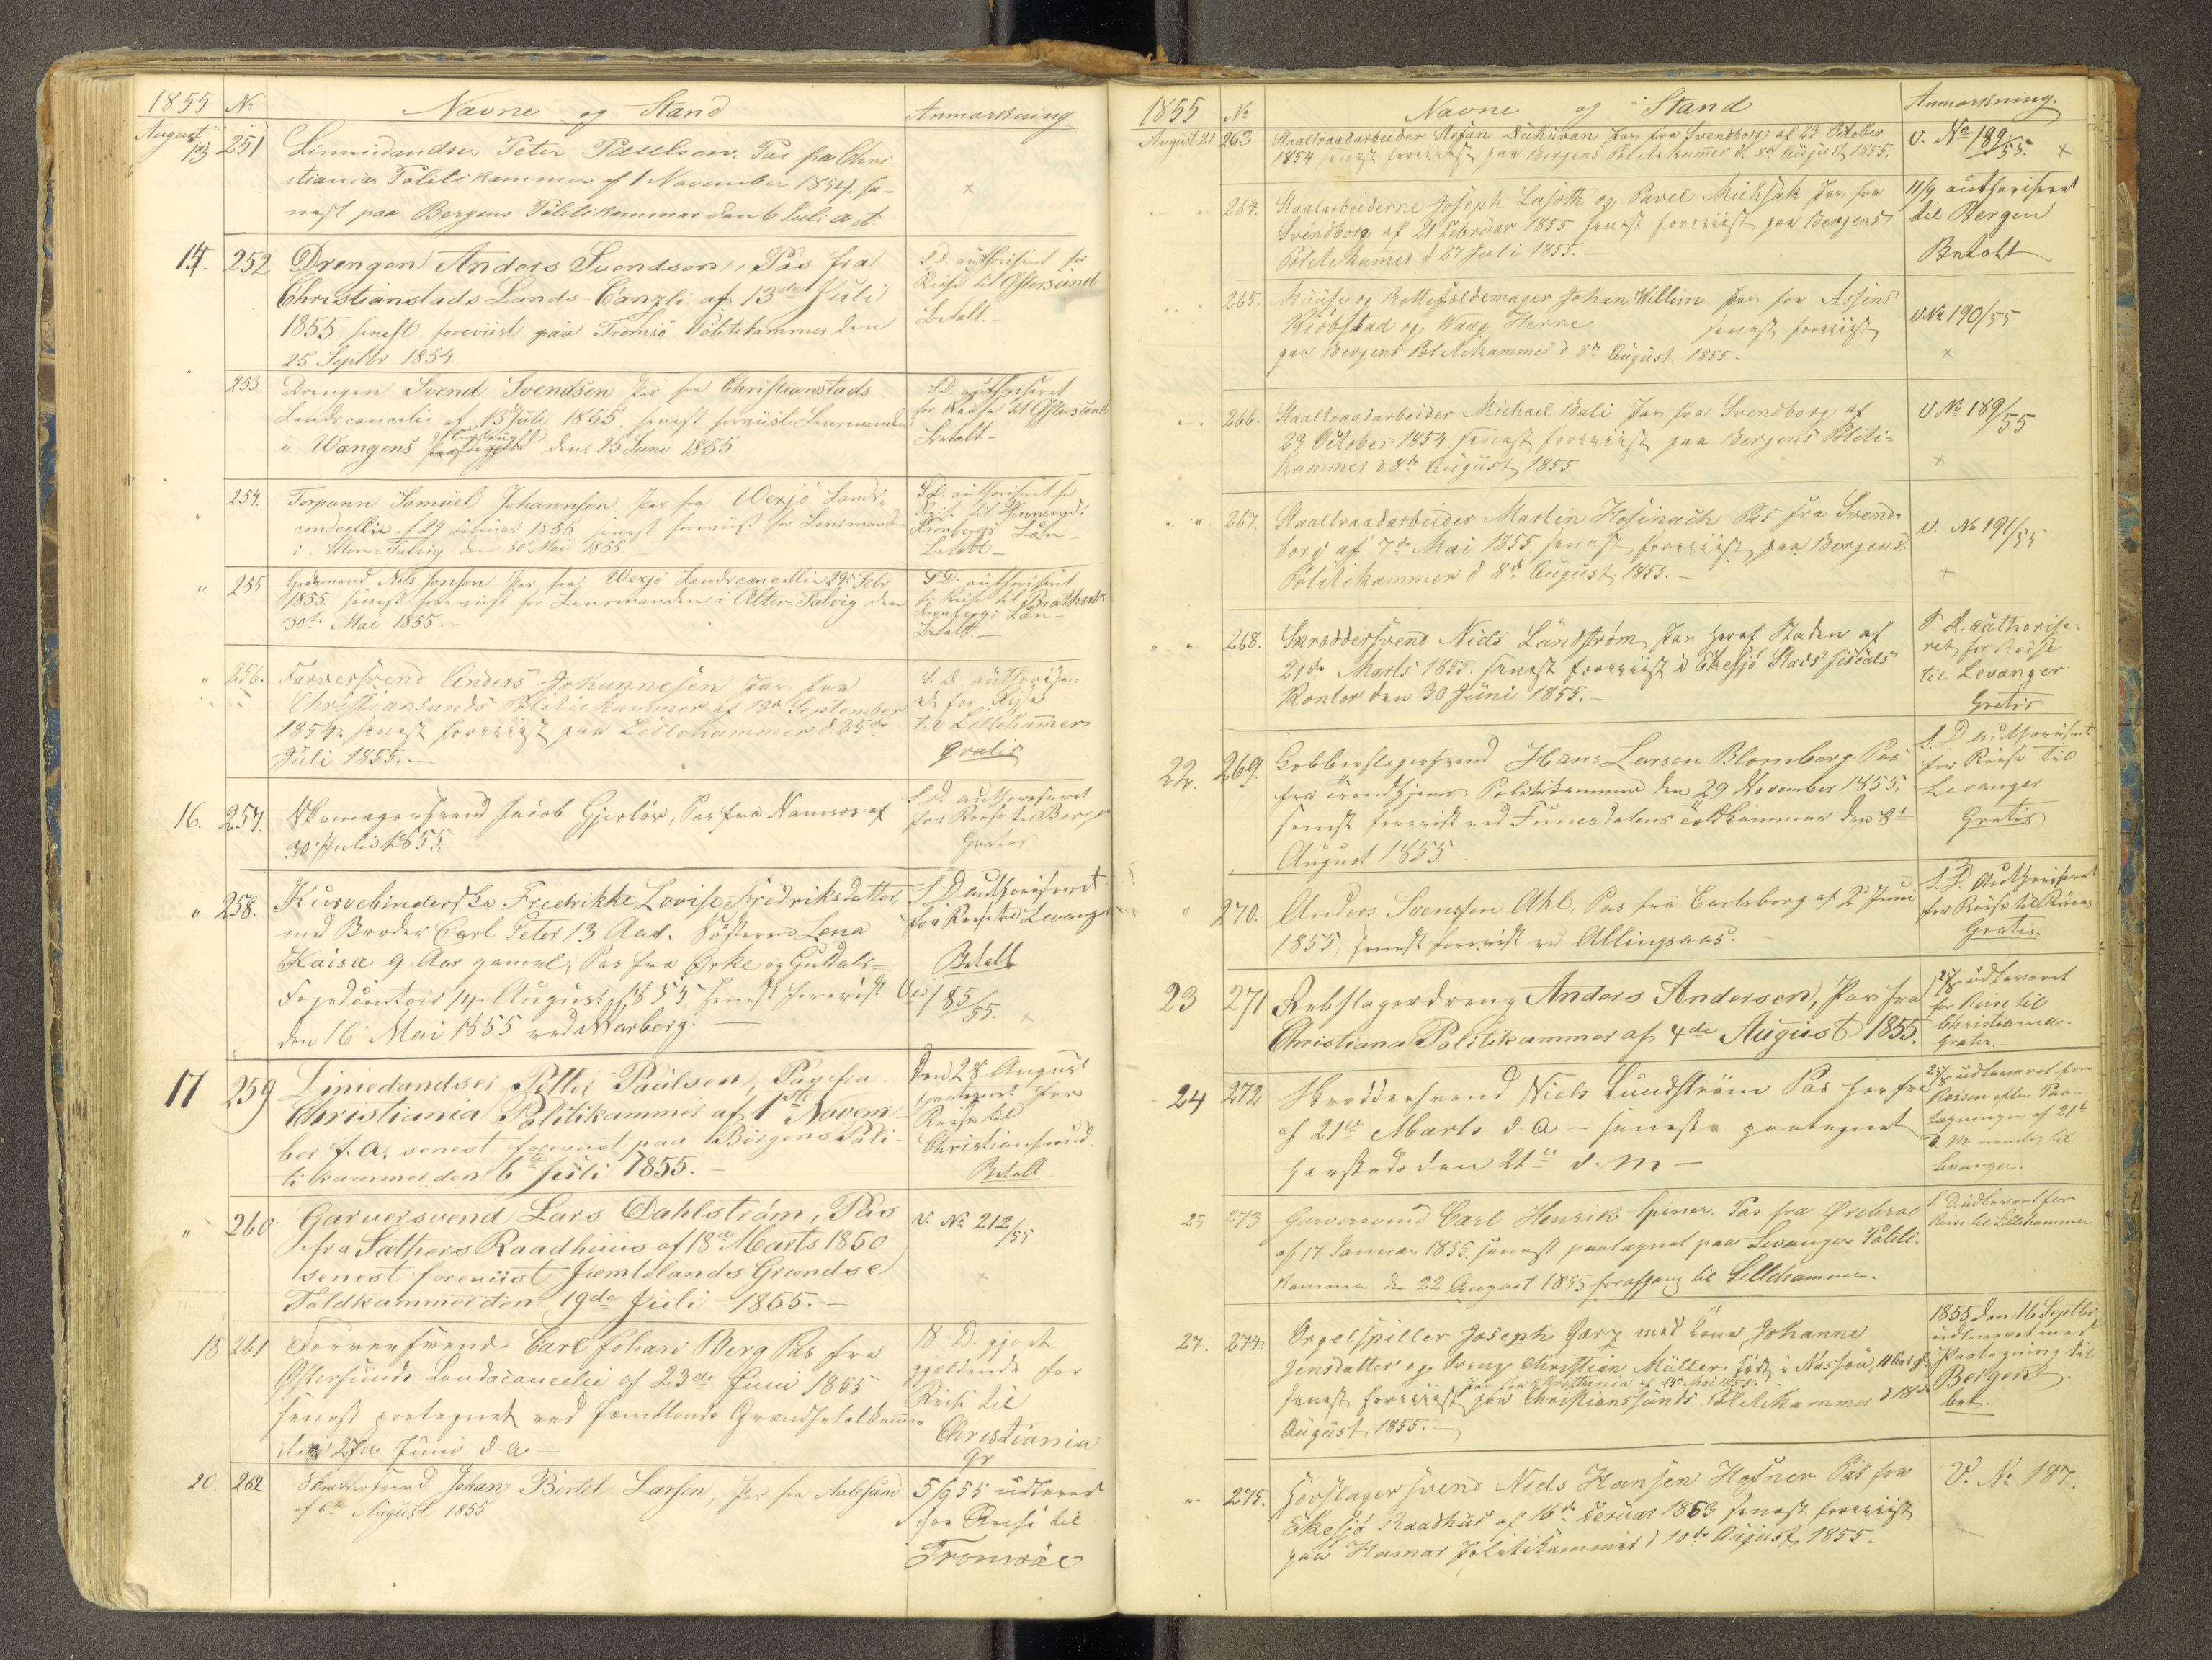 1855 No Navne og Stand Anmærkning
August 13 251 Liniedandser Peter Paulsen. Pas fra Chri-
stiania Politikammer af 1 November 1854. se-
nest paa Bergens Politikammer den 6 Juli a. d. x
14. 252 Drengen Anders Svendsen, Pas fra
Christianstads Lands-Canzli af 13de Juli
1855. senest foreviist paa Tromsö Politikammer den
25 Septbr 1854.
S. D. authoriseret for
Reise til Østersund
Betalt.-
253. Drengen Svend Svendsen Pas fra Christianstads
Landscancelie af 13de Juli 1855. senest foreviist Lensmanden
i Wangens den 25 Juni 1855
S. D. authoriseret
for Reise til Østersund
Betalt-
" 254. Samuel Johannson Pas fra Wexjö Lands-
cancellie af 29 Februar 1855 senest foreviist for Lensmanden
i Alten-Talvig den 30te Mai 1855
S. D. authoriseret for
Reise til
Kronbergs Län-
Betalt-
" 255 Nils Jonson Pas fra Wexjö Landscancellie 29de Febr
1855. senest foreviist for Lensmanden i Alten-Talvig den
30te Mai 1855.-
S. D. authoriseret
for Reise til
Kronbergs Län-
Betalt.-
" 256. Farversvend Anders Johannesen Pas fra
Christiansands Politiekammer af 13de September
1854. senest foreviist paa Lillehammer d. 25de
Juli 1855.-
S. D. authorise-
ret for Reise
til Lillehammer
Gratis
16. 257. Skomagersvend Jacob Gjerlöv, Pas fra Namsos af
30 Juli 1855.
S. D. authoriseret
for Reise til Bergen
Gratis
" 258. Kurvebinderske Fredrikke Lovise Fredriksdatter,
med Broder Carl Peter 13 Aar. Søsteren Lena
Kaisa 9 Aar gammel, Pas fra Orke og Guldals-
Fogedcontoir 14 August 1855, senest foreviist
den 16 Mai 1855 ved Warberg.-
S. D. authoriseret
for Reise til Levanger
Betalt
185/55. x
17 259 Liniedandser Petter Paulsen, Pas fra
Christiania Politikammer af 1ste Novem-
ber f. A. senest foreviist paa Bergens Poli-
tikammer den 6te Juli 1855.-
Den 28 August
paategnet for
Reise til
Christiansund.
Betalt
" 260 Garversvend Lars Dahlström, Pas
fra Sæthers Raadhuus af 18de Marts 1850
senest foreviist Jæmtelands Grændse
Toldkammer den 19de Juli 1855.-
V. No 212/55
x
18 261 Farversvend Carl Johan Berg Pas fra
Østersunds Landscancelie af 23de Juni 1855
senest paategnet ved Jæmtlands Grændsetoldkammer
den 27de Juni d. A.-
S. D. gjort
gjeldende for
Reise til
Christiania
Gr
20. 262 Skræddersvend Johan Bertel Larsen, Pas fra Aalesund
af 6te August 1855
5/9 55 udleveret
for Reise til
Tromsöe
1855 No Navne og Stand Anmærkning.
August 21. 263 Staaltraadarbeider Stefan Pas fra Svendborg af 23 October
1854 senest foreviist paa Bergens Politikammer d. 8de August 1855.
V. No 189/55. x
" " 264. Staalarbeiderne Joseph Lasoth og Pavel Micksak Pas fra
Svendborg af 21 Februar 1855 senest foreviist paa Bergens
Politikamer d 27 Juli 1855.-
11/9 authoriseret
til Bergen
Betalt
" " 265. Muuse og Rottefældemager Johan Willim Pas fra Assens
Kiöbstad og Herre senest foreviist
paa Bergens Politikammer d 8de August 1855-
V No 190/55
x
" " 266. Staaltraadarbeider Michael Bali Pas fra Svendborg af
23 October 1854 senest foreviist paa Bergens Politi-
kammer d 8de August 1855.
V No 189/55
x
" " 267. Staaltraadarbeider Martin Hosinach Pas fra Svend-
borg af 7de Mai 1855 senest foreviist paa Bergens
Politikammer d 8de August 1855.-
V. No 191/55
x
" " 268. Skræddersvend Niels Lundström Pas heraf Staden af
21de Marts 1855. senest foreviist i Ekesjö Stads Fiscals
Kontor den 30 Juni 1855.-
S. D. authorise-
ret for Reise
til Levanger
Gratis
22. 269. Kobberslagersvend Hans Larsen Blomberg Pas
fra Trondhjems Politikammer den 29 November 1855,
senest foreviist ved Funesdalens Toldkammer den 8de
August 1855.
S. D. authoriseret
for Reise til
Levanger
Gratis
" 270. Anders Svensson Ahl, Pas fra Carlsborg af 2den Juni
1855, senest foreviist ved Allingsaas.-
S. D. Authoriseret
for Reise til Röraas
Gratis.
23 271 Rebslagerdreng Anders Andersen, Pas fra
Christiana Politikammer af 4de August 1855.
28/8 udleveret
for Reise til
Christiania.
Gratis.-
24 272 Skræddersvend Niels Lundström Pas her fra
af 21de Marts d. A - seneste paategnet
hersteds den 21de d. M-
25/8 udleveret for
Reisen efter Paa-
tegningen af 21de
d. M. nemlig til
Levanger.
25 273 Garversvend Carl Henrik Spiner. Pas fra Örebroe
af 17 Januar 1855. senest paategnet paa Levanger Politi-
kammer den 22 August 1855 for afgang til Lillehammer.
S. D. udleveret for
Reise til Lillehammer
27. 274. Orgelspiller Joseph Görz med Kone Johanne
Jensdatter og Dreng Christian Müller, född i Nassau, 11 Aar gl.
Pas fra Christiania af 18de Mai 1855.
senest foreviist paa Christianssunds Politikammer d 18de
August 1855.-
1855 den 16 Septbr
udleveret med
Paategning til
Bergen.
bet.
" 275. Hovslagersvend Niels Hansen Hofner Pas fra
Ekesjö Raadhus af 16de Feruar 1853 senest foreviist
paa Hamar Politikammer d 10de August 1855-
V. No 187.
x